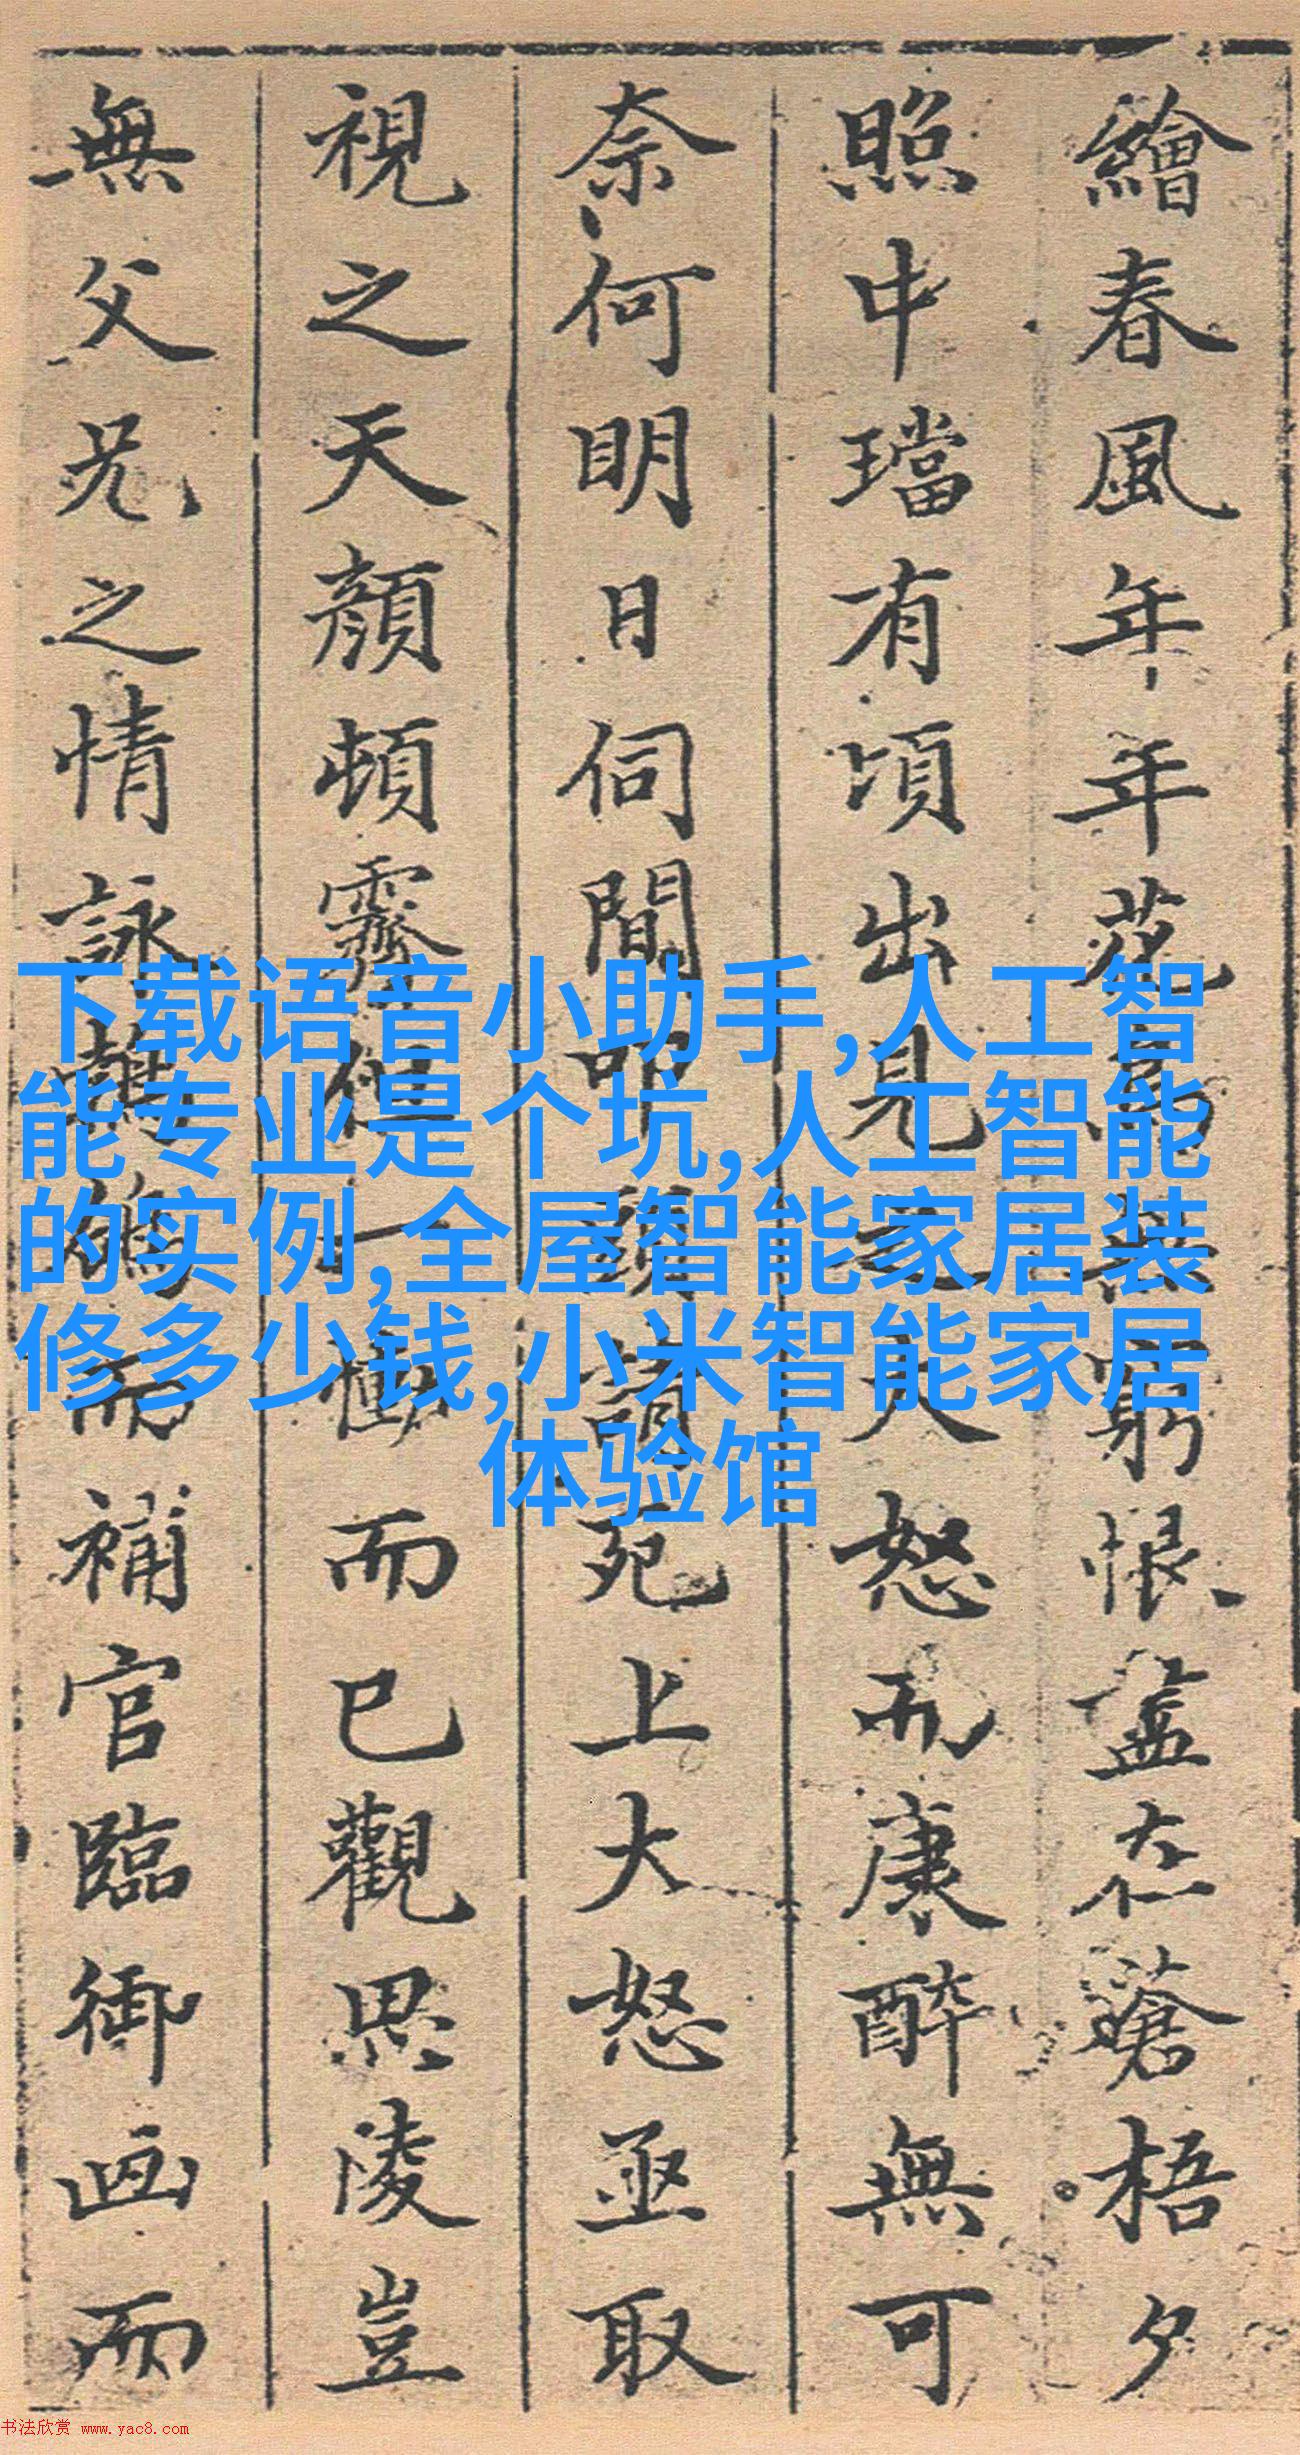 繪春風年年花鳥無窮恨盡在蒼梧夕
照中璫有頃出見之大怒而康醉無可
奈何明日伺間叩頭請死上大怒亟取
視之天顏頓霽但一慟而已觀思陵豈
無父兄之情詠鶺鴒而補官臨御画而
下载语音小助手,人工智
能专业是个坑,人工智能
的实例,全屋智能家居装
修多少钱,小米智能家居
体验馆
书法欣赏 www.yac8.com